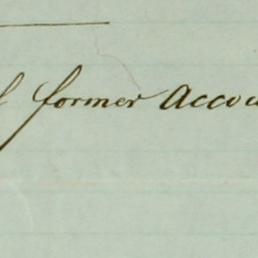 former Accou